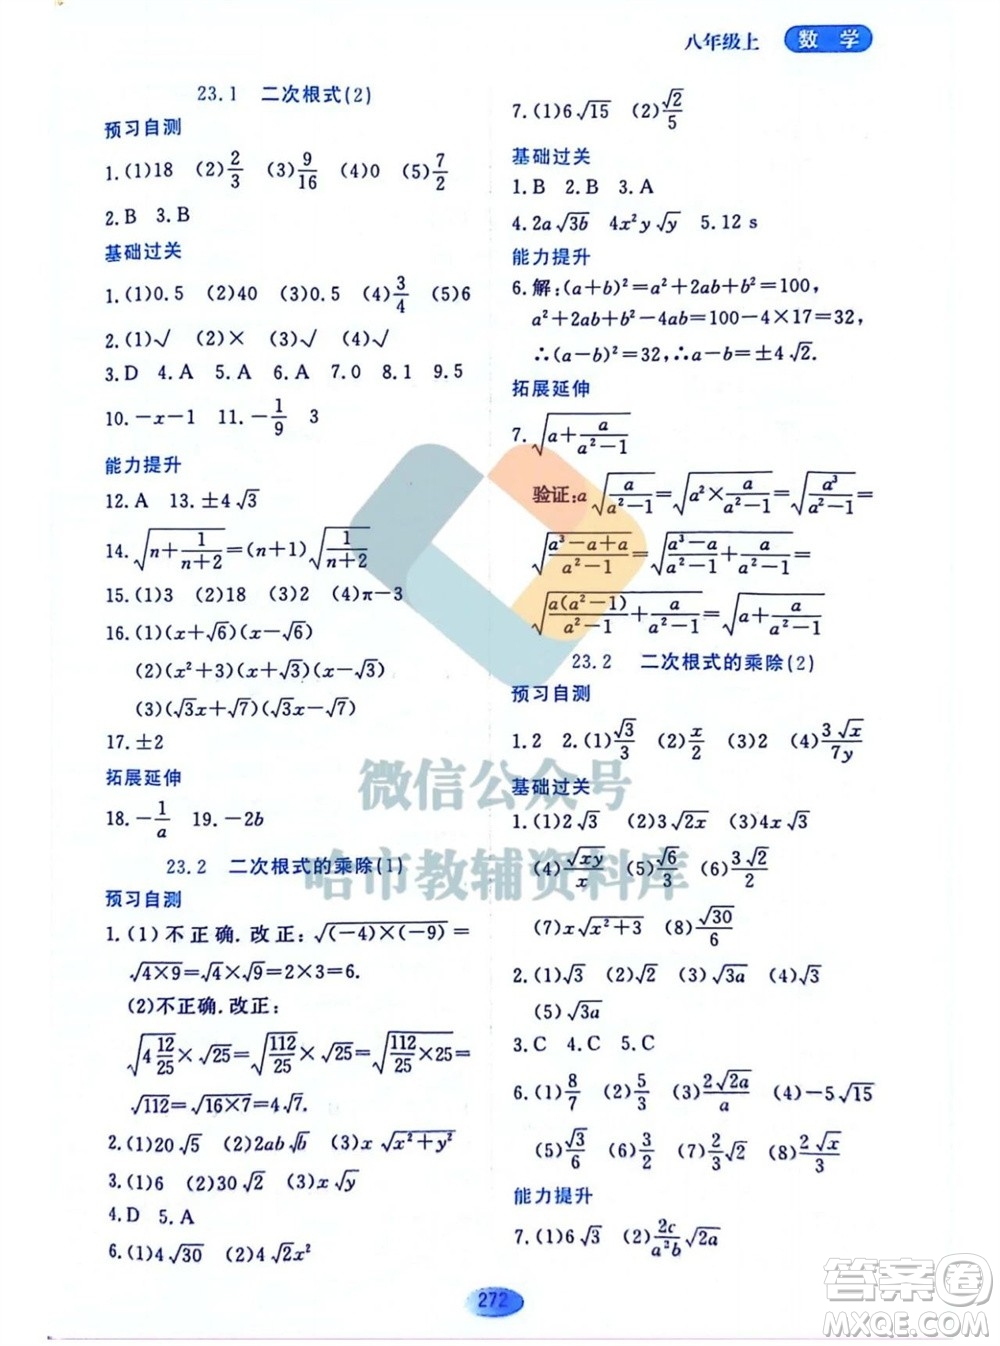 八年级上 数学
23.1 二次根式(2)
预习自测
1.(1)18 (2)2/3 (3)9/16 (4)0 (5)7/2
2.B 3.B
基础过关
1.(1)0.5 (2)40 (3)0.5 (4)3/4 (5)6
2.(1)√ (2)× (3)√ (4)√
3.D 4.A 5.A 6.A 7.0 8.1 9.5
10.-x-1 11.-1/9 3
能力提升
12.A 13.±4√3
14.√(n+1/(n+2))=(n+1)√(1/(n+2))
15.(1)3 (2)18 (3)2 (4)π-3
16.(1)(x+√6)(x-√6)
(2)(x²+3)(x+√3)(x-√3)
(3)(√3x+√7)(√3x-√7)
17.±2
拓展延伸
18.-1/a 19.-2b
23.2 二次根式的乘除(1)
预习自测
1.(1)不正确.改正:√((-4)×(-9))=
√(4×9)=√4×√9=2×3=6.
(2)不正确.改正:
√(4 12/25)×√25=√(112/25)×√25=√(112/25×25)=
√112=√(16×7)=4√7.
2.(1)20√5 (2)2ab√b (3)x√(x²+y²)
3.(1)6 (2)30√2 (3)x√y
4.D 5.A
6.(1)4√30 (2)4√2x²
7.(1)6√15 (2)√2/5
基础过关
1.B 2.B 3.A
4.2a√(3b) 4x²y√y 5.12 s
能力提升
6.解:(a+b)²=a²+2ab+b²=100,
a²+2ab+b²-4ab=100-4×17=32,
∴(a-b)²=32,∴a-b=±4√2.
拓展延伸
7.√(a+a/(a²-1))
验证:a√(a/(a²-1))=√(a²×a/(a²-1))=√(a³/(a²-1))=
√((a³-a+a)/(a²-1))=√((a³-a)/(a²-1)+a/(a²-1))=
√(a(a²-1)/(a²-1)+a/(a²-1))=√(a+a/(a²-1))
23.2 二次根式的乘除(2)
预习自测
1.2 2.(1)√3/3 (2)x/2 (3)2 (4)3√x/7y
基础过关
1.(1)2√3 (2)3√(2x) (3)4√3
(4)√(xy)/x (5)√6/2 (6)3√2/2
(7)x√(x²+3) (8)√30/6
2.(1)√3 (2)√2 (3)√(3a) (4)√3
(5)√(3a)
3.C 4.C 5.C
6.(1)8/7 (2)5/3 (3)2√(2a)/a (4)-5√15
(5)√3/6 (6)3/2 (7)2/3√2 (8)2√x/3
能力提升
7.(1)6√3 (2)2c/(a²b)√(2a)
272
微信公众号
哈市教辅资料库
答案圈
MXQE.COM